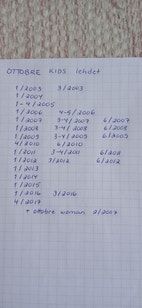 OTTOBRE KIDS lehdet
1/2003 3/2003
1/2004
1-4/2005
1/2006 4-5/2006
1/2007 3-4/2007 6/2007
1/2008 3-4/2008 6/2008
1/2009 3-4/2009 6/2009
4/2010 6/2010
1/2011 3-4/2011 6/2011
1/2012 3/2012 6/2012
1/2013
1/2014
1/2015
1/2016 3/2016
4/2017
+ ottobre woman 2/2007